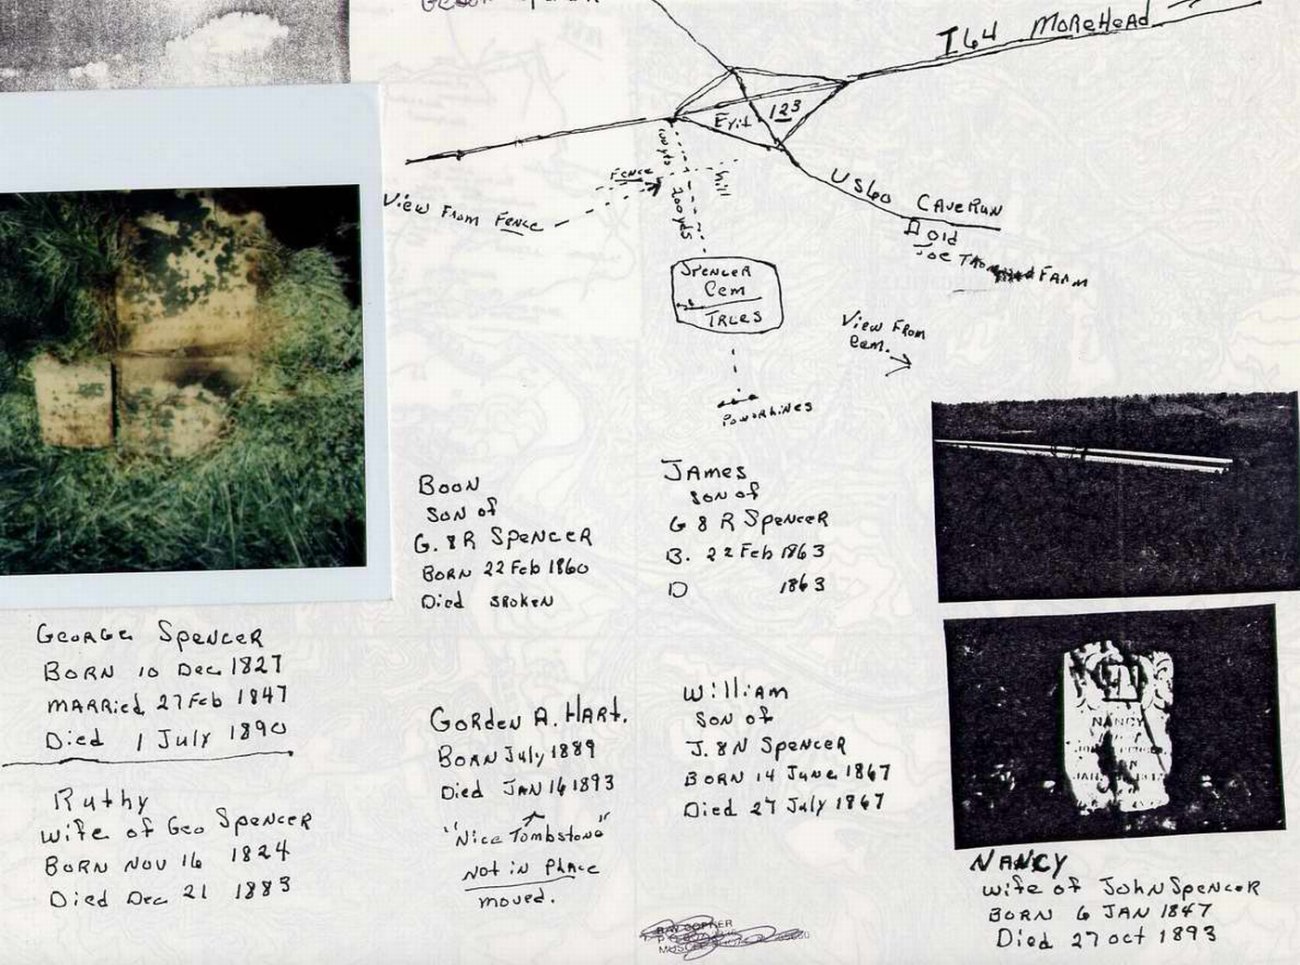 I64 MOREHEAD
Exit 123
100 yds
FENCE
Hill
200 yds
View From FENCE
US60 CAVE RUN
Old
JOE FARM
SPENCER
Cem
TREES
View From
Cem.
PowerLines
BOON
SON of
G. & R SPENCER
BORN 22 Feb 1860
Died BROKEN
JAMES
SON of
G & R SPENCER
B. 22 Feb 1863
D 1863
GEORGE SPENCER
BORN 10 Dec 1827
MARRied 27 Feb 1847
Died 1 July 1890
Ruthy
Wife of Geo SPENCER
BORN NOV 16 1824
Died Dec 21 1883
GORDEN A. HART.
BORN July 1889
Died JAN 16 1893
"Nice Tombstone"
Not in PLACE
moved.
William
SON of
J. & N SPENCER
BORN 14 June 1867
Died 27 July 1867
NANCY
NANCY
Wife of JOHN SPENCER
BORN 6 JAN 1847
Died 27 oct 1893